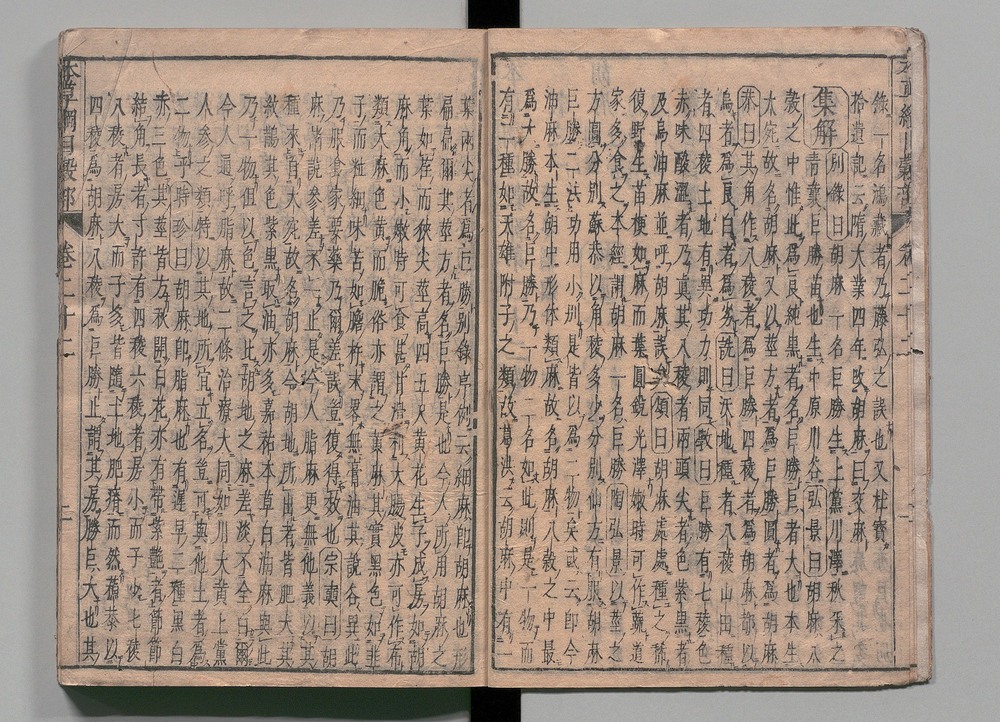 本草綱目穀部　卷二十二
錄一名鴻藏者乃藤弘之誤也又杜寶
拾遺記云隋大業四年改胡麻曰交麻
集解　別錄曰胡麻一名巨勝生上黨川澤秋采之
青蘘巨勝苗也生中原川谷弘景曰胡麻八
穀之中惟此爲良純黑者名巨勝巨者大也本生
大宛故名胡麻又以莖方者爲巨勝圓者爲胡麻
恭曰其角作八稜者爲巨勝四稜者爲胡麻都以
烏者爲良白者爲劣詵曰沃地種者八稜山田種
者四稜土地有異功力則同斅曰巨勝有七稜色
赤味酸澀者乃真其八稜者兩頭尖者色紫黑者
及烏油麻並呼胡麻誤矣頌曰胡麻處處種之稀
復野生苗梗如麻而葉圓銳光澤嫩時可作蔬道
家多食之本經謂胡麻一名巨勝陶弘景以莖之
方圓分別蘇恭以角稜多少分別仙方有服胡麻
巨勝二法功用小別是皆以爲二物矣或云即今
油麻本生胡中形体類麻故名胡麻八穀之中最
爲大勝故名巨勝乃一物二名如此則是一物而
有二種如天雄附子之類故葛洪云胡麻中有一
葉兩尖者爲巨勝別錄序例云細麻即胡麻也形
扁扁爾其莖方者名巨勝是也今人所用胡麻之
葉如荏而狹尖莖高四五尺黃花生子成房如胡
麻角而小嫩時可食甚甘滑利大腸皮亦可作布
類大麻色黃而脆俗亦謂之黃麻其實黑色如韭
子而粒細味苦如膽杵末畧無膏油其說各異此
乃服食家要藥乃爾差誤豈復得效也宗奭曰胡
麻諸說參差不一止是今人脂麻更無他義以其
種來自大宛故名胡麻今胡地所出者皆肥大其
紋鵲其色紫黑取油亦多嘉祐本草白油麻與此
乃一物但以色言之比胡地之麻差淡不全白爾
今人通呼脂麻故二條治療大同如川大黃上黨
人參之類特以其地所宜立名豈可與他土者爲
二物乎時珍曰胡麻即脂麻也有遲早二種黑白
赤三色其莖皆方秋開白花亦有帶紫艷者節節
結角長者寸許有四稜六稜者房小而子少七稜
八稜者房大而子多皆隨土地肥瘠而然蘇恭以
四稜爲胡麻八稜爲巨勝止謂其房勝巨大也其
本草綱目穀部　卷二十二　二